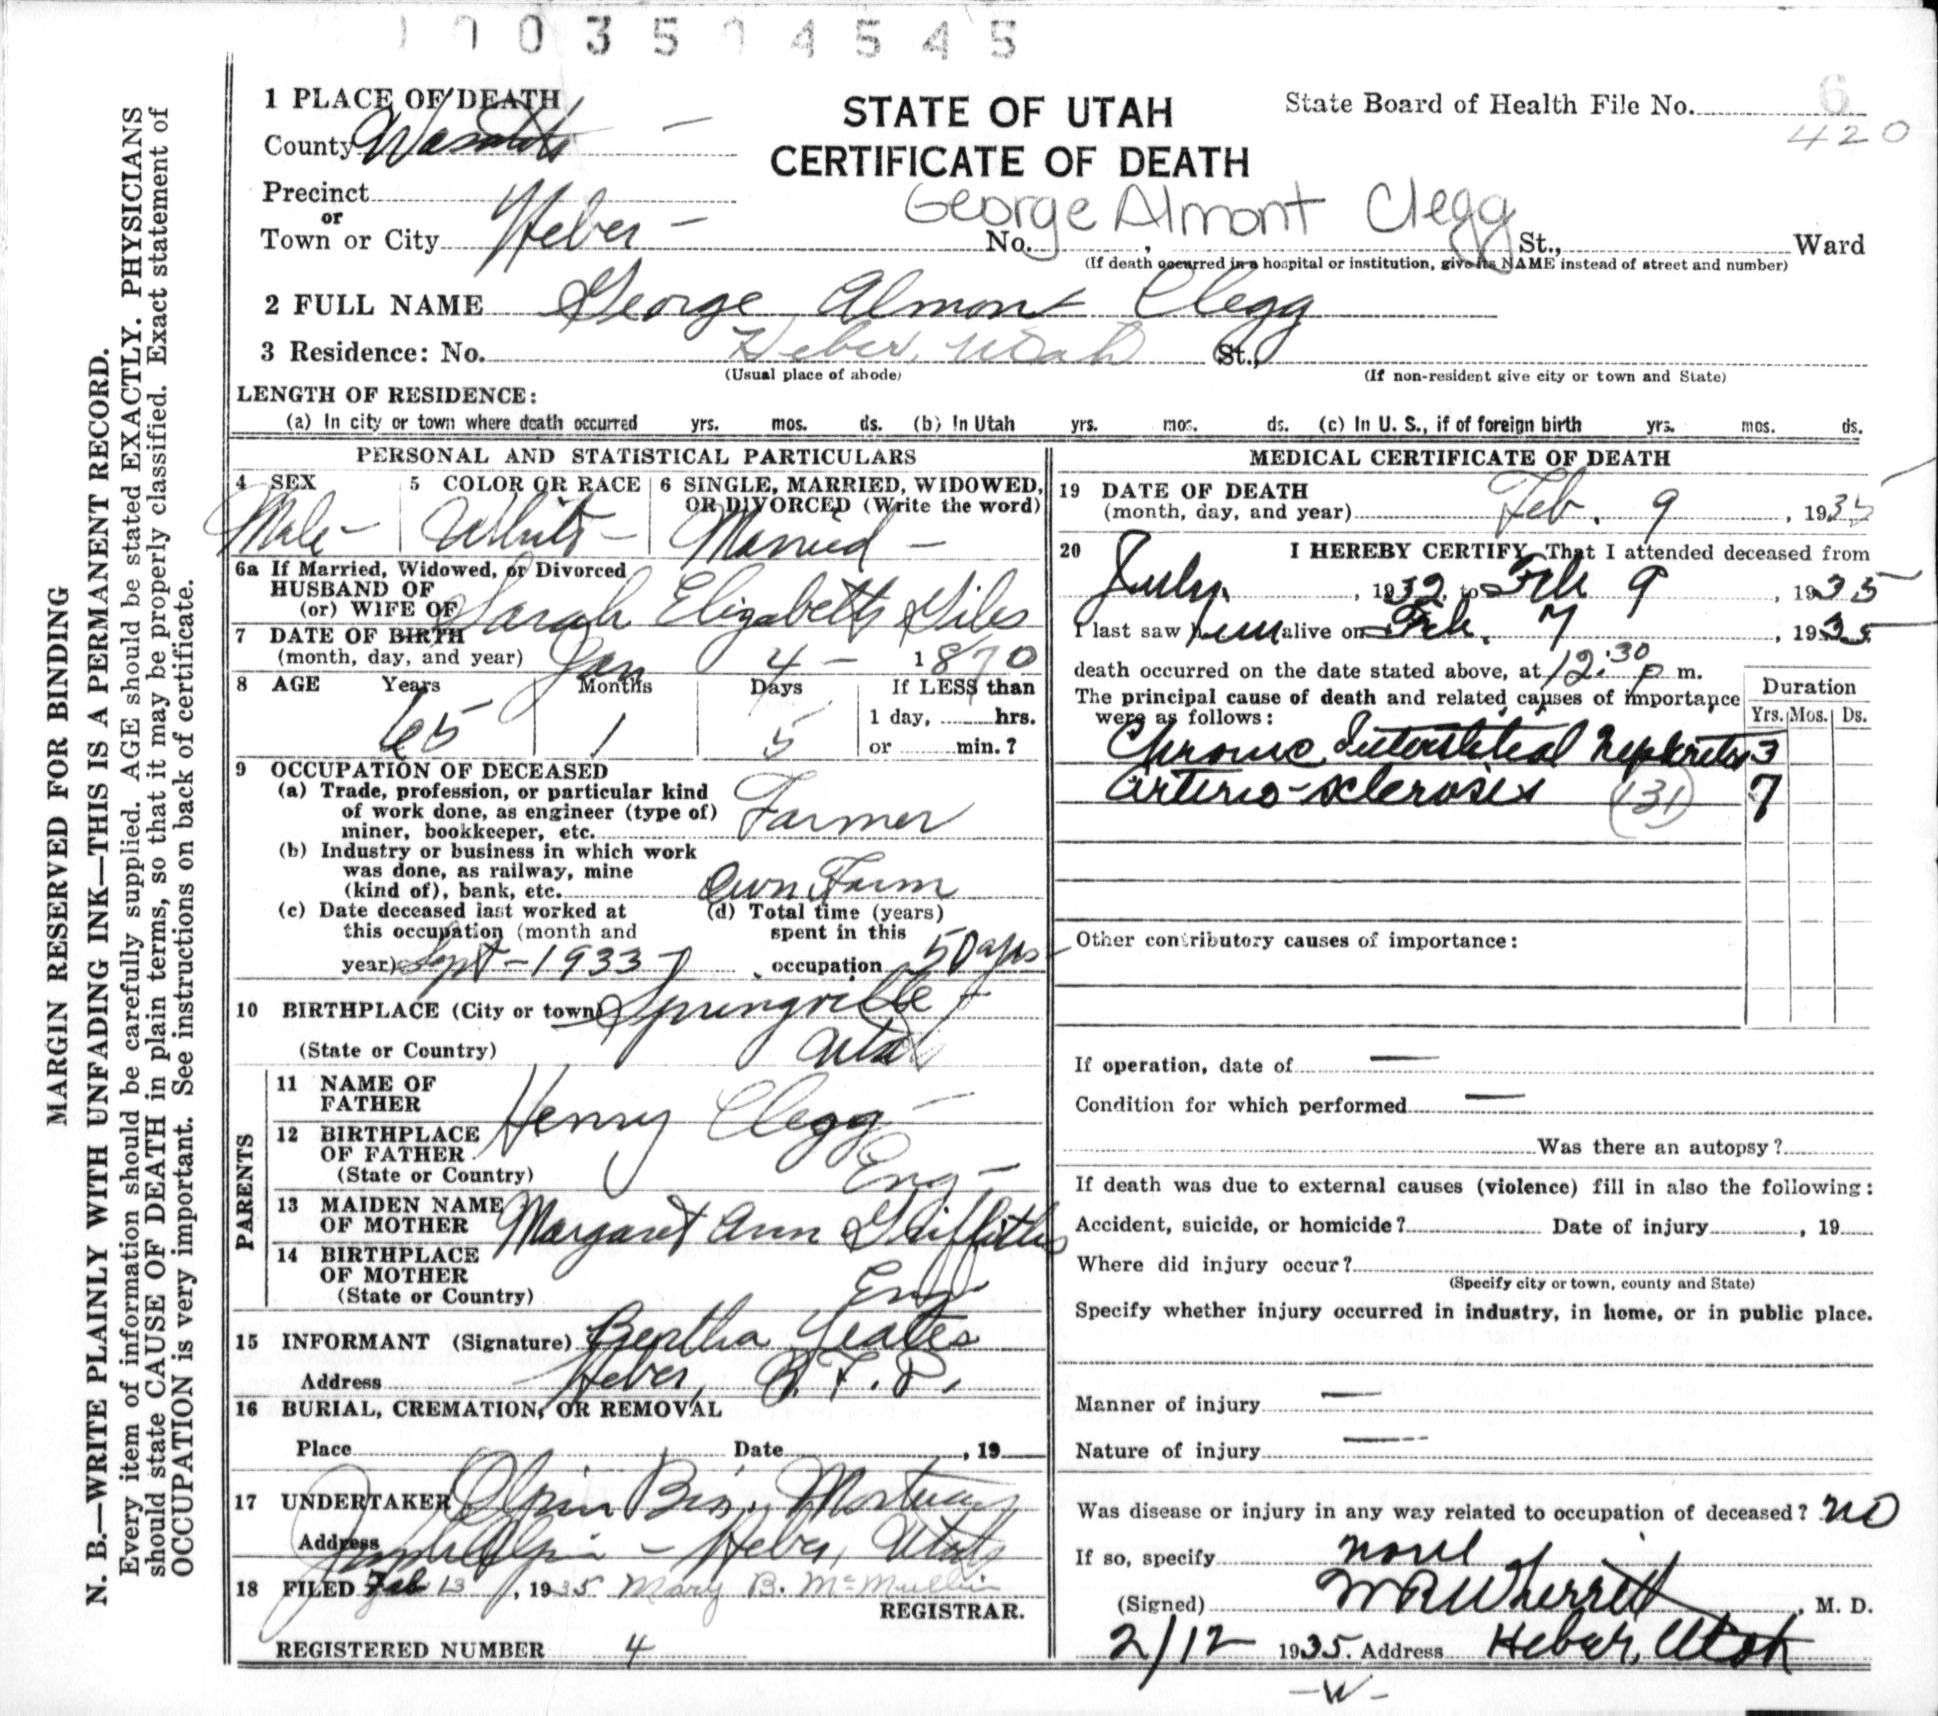 0 0 3 5 0 4 5 4 5
1 PLACE OF DEATH
County Wasatch
STATE OF UTAH
CERTIFICATE OF DEATH
State Board of Health File No. 6
420
Precinct
or
Town or City Heber
George Almont Clegg
No. , St., Ward
(If death occurred in a hospital or institution, give its NAME instead of street and number)
2 FULL NAME George Almont Clegg
3 Residence: No. Heber, Utah St.,
(Usual place of abode) (If non-resident give city or town and State)
LENGTH OF RESIDENCE:
(a) In city or town where death occurred yrs. mos. ds. (b) In Utah yrs. mos. ds. (c) In U. S., if of foreign birth yrs. mos. ds.
PERSONAL AND STATISTICAL PARTICULARS
4 SEX Male
5 COLOR OR RACE White
6 SINGLE, MARRIED, WIDOWED, OR DIVORCED (Write the word) Married
6a If Married, Widowed, or Divorced
HUSBAND OF
(or) WIFE OF Sarah Elizabeth Giles
7 DATE OF BIRTH
(month, day, and year) Jan 4 - 1870
8 AGE Years Months Days If LESS than
65 1 5 1 day, hrs.
or min.?
9 OCCUPATION OF DECEASED
(a) Trade, profession, or particular kind
of work done, as engineer (type of)
miner, bookkeeper, etc. Farmer
(b) Industry or business in which work
was done, as railway, mine
(kind of), bank, etc. Own Farm
(c) Date deceased last worked at
this occupation (month and
year) Sept - 1933
(d) Total time (years)
spent in this
occupation 50 yrs
10 BIRTHPLACE (City or town) Springville
(State or Country) Utah
PARENTS
11 NAME OF
FATHER Henry Clegg
12 BIRTHPLACE
OF FATHER
(State or Country) Eng -
13 MAIDEN NAME
OF MOTHER Margaret Ann Griffiths
14 BIRTHPLACE
OF MOTHER
(State or Country) Eng
15 INFORMANT (Signature) Bertha Yeates
Address Heber,
16 BURIAL, CREMATION, OR REMOVAL
Place Date , 19
17 UNDERTAKER Olpin Bros. Mortuary
Address Olpin - Heber, Utah
18 FILED Feb 13, 1935 Mary B. McMullin
REGISTRAR.
REGISTERED NUMBER 4
MEDICAL CERTIFICATE OF DEATH
19 DATE OF DEATH
(month, day, and year) Feb. 9, 1935
20 I HEREBY CERTIFY, That I attended deceased from
July, 1932, to Feb 9, 1935
I last saw him alive on Feb. 7, 1935
death occurred on the date stated above, at 12:30 p m.
The principal cause of death and related causes of importance
were as follows:
Duration
Yrs. Mos. Ds.
Chronic Interstitial Nephritis 3
Arterio-sclerosis (131) 7
Other contributory causes of importance:
If operation, date of —
Condition for which performed —
Was there an autopsy?
If death was due to external causes (violence) fill in also the following:
Accident, suicide, or homicide? Date of injury , 19
Where did injury occur?
(Specify city or town, county and State)
Specify whether injury occurred in industry, in home, or in public place.
Manner of injury —
Nature of injury —
Was disease or injury in any way related to occupation of deceased? no
If so, specify none
(Signed) W R Wherritt, M. D.
2/12 1935. Address Heber, Utah
-W-
MARGIN RESERVED FOR BINDING
N. B.—WRITE PLAINLY WITH UNFADING INK—THIS IS A PERMANENT RECORD.
Every item of information should be carefully supplied. AGE should be stated EXACTLY. PHYSICIANS
should state CAUSE OF DEATH in plain terms, so that it may be properly classified. Exact statement of
OCCUPATION is very important. See instructions on back of certificate.